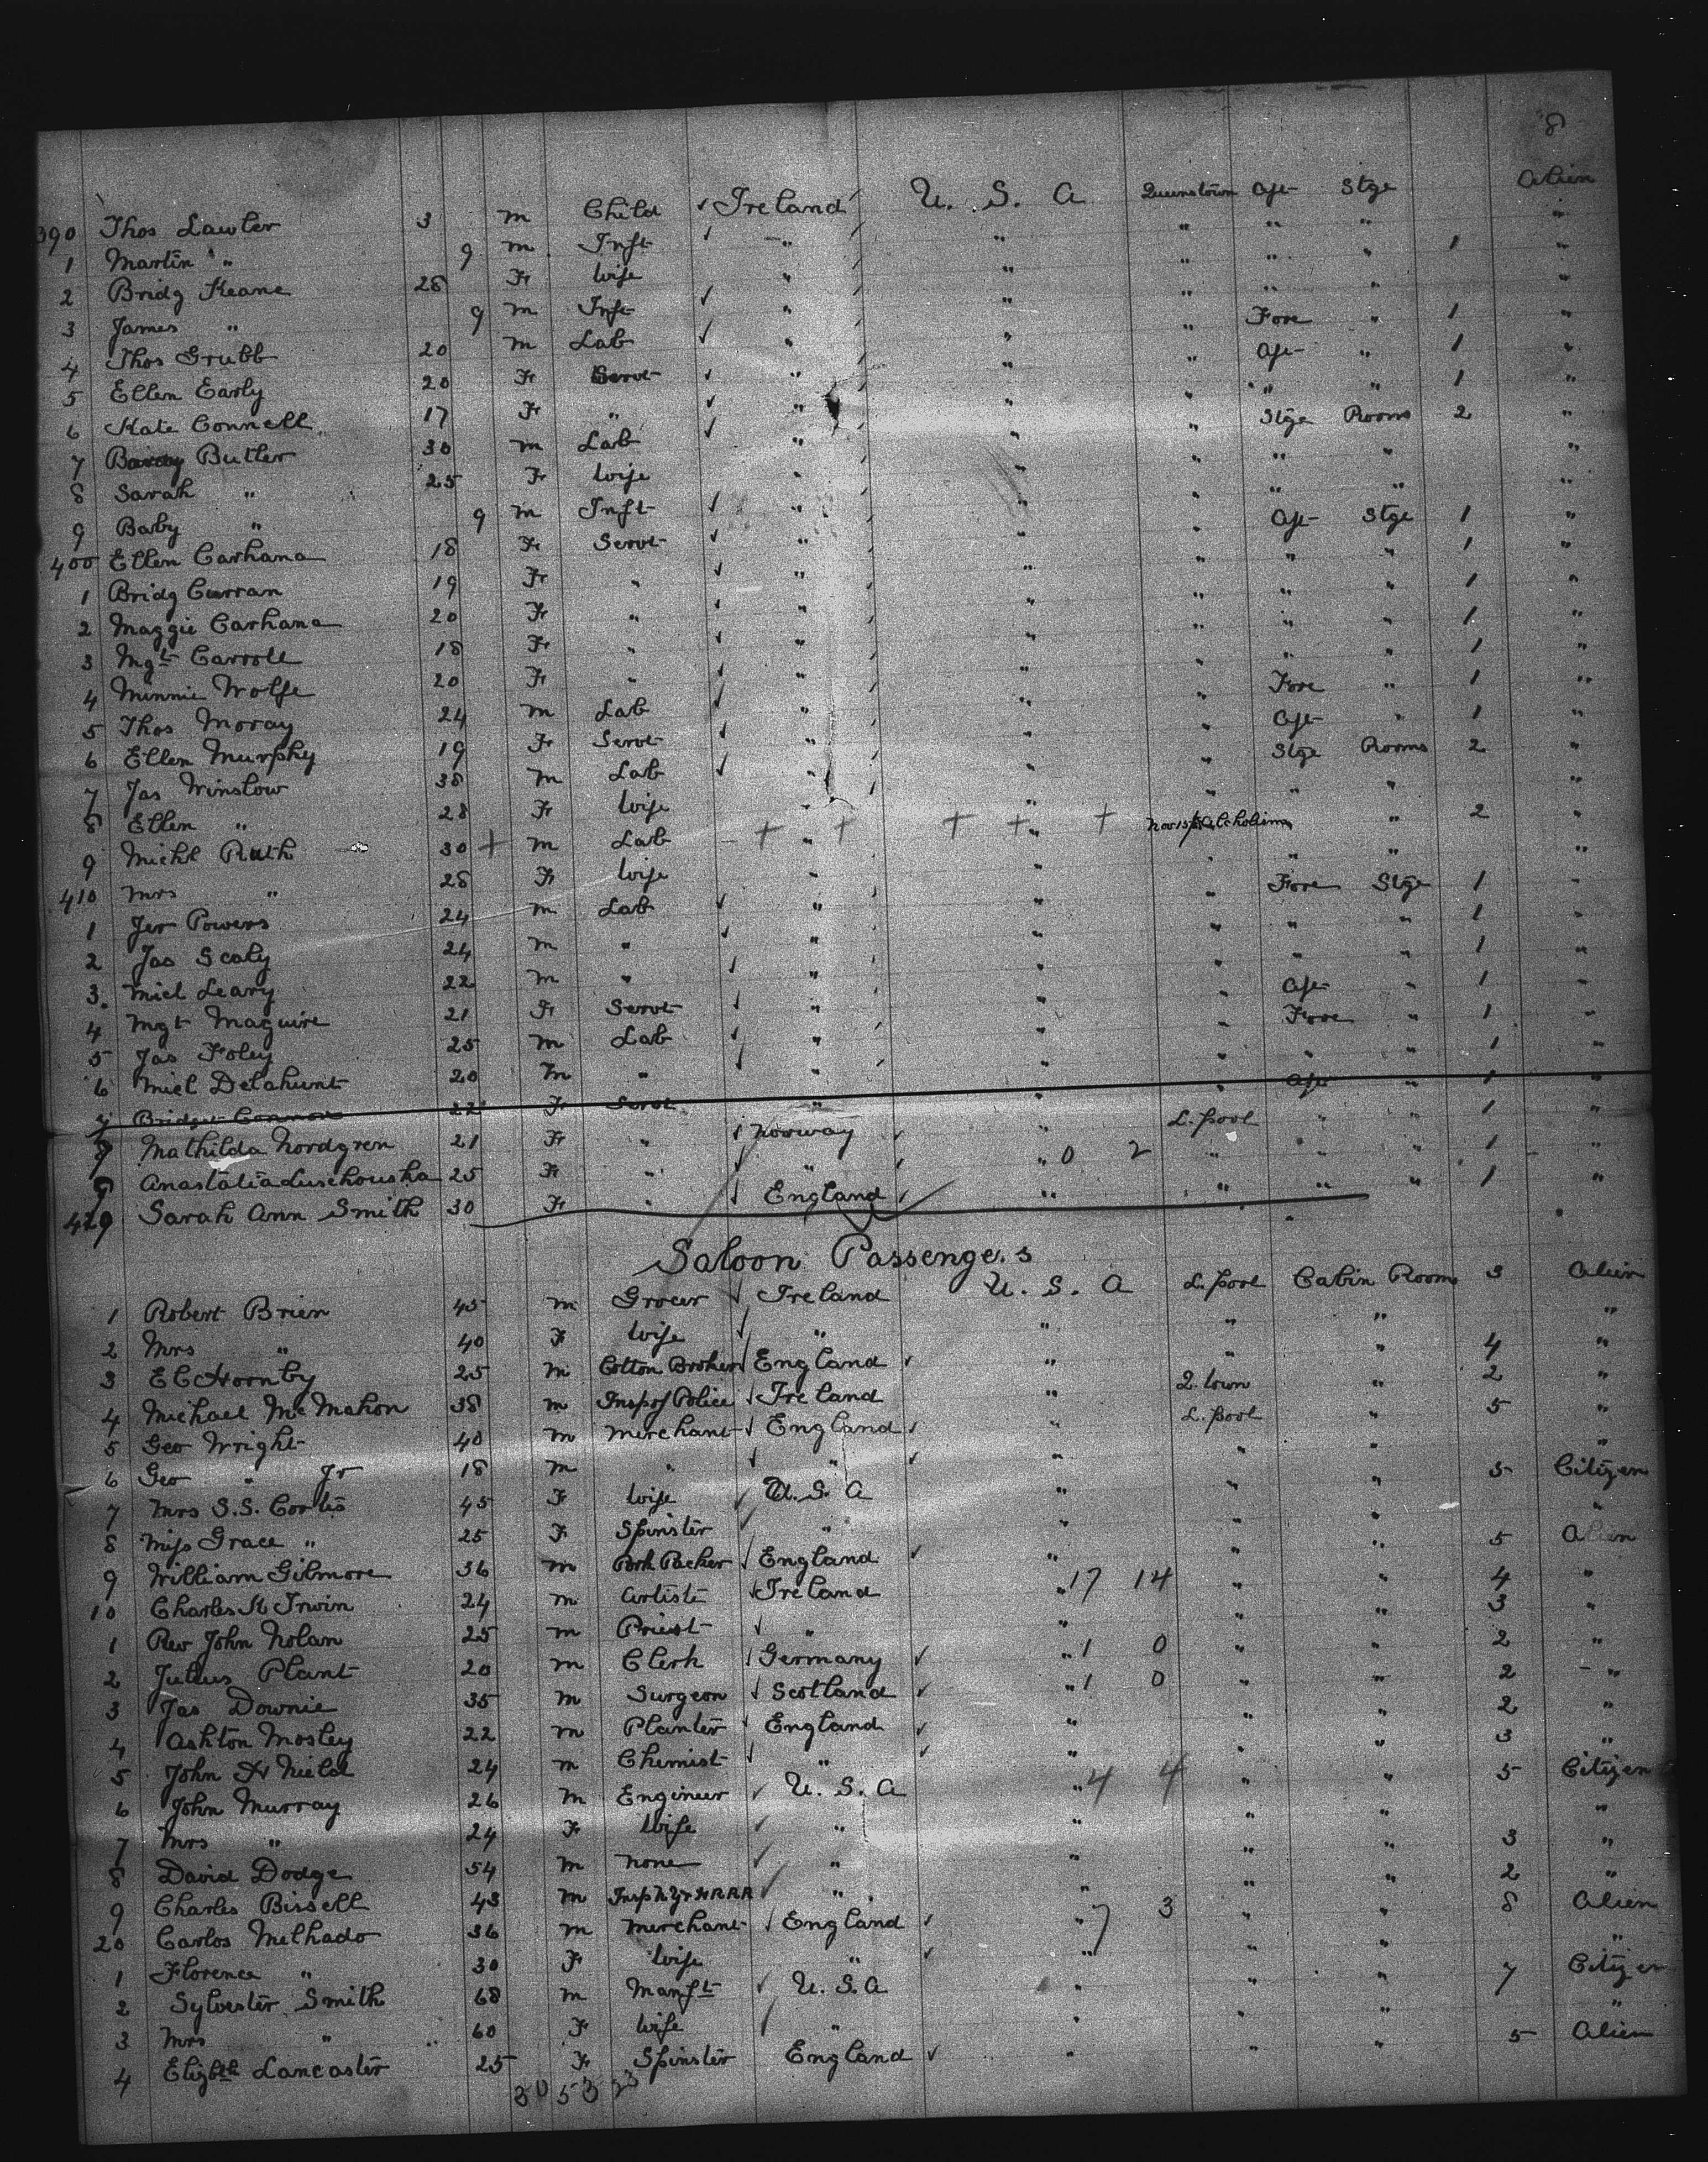 8
390 Thos Lawler 3 m Child Ireland U. S. A Queenstown Aft Stge Alien
1 Martin " 9 m Inft " " " " " "
2 Bridg Keane 28 Fr Wife " " " " " 1 "
3 James " 9 m Inft " " " " " "
4 Thos Grubb 20 m Lab " " " Fore " 1 "
5 Ellen Early 20 Fr Servt " " " Aft " 1 "
6 Kate Connell 17 Fr " " " " " " 1 "
7 Butler 30 m Lab " " " Stge Rooms 2 "
8 Sarah " 25 Fr Wife " " " " " "
9 Baby " 9 m Inft " " " " " "
400 Ellen Carhana 18 Fr Servt " " " Aft Stge 1 "
1 Bridg Curran 19 Fr " " " " " " 1 "
2 Maggie Carhana 20 Fr " " " " " " 1 "
3 Mgt Carroll 18 Fr " " " " " " 1 "
4 Minnie Wolfe 20 Fr " " " " " " 1 "
5 Thos Moray 24 m Lab " " " Fore " 1 "
6 Ellen Murphy 19 Fr Servt " " " Aft " 1 "
7 Jas Winslow 38 m Lab " " " Stge Rooms 2 "
8 Ellen " 28 Fr Wife " " " " " "
9 Michl Ruth 30 + m Lab + " + + + " + Nov 15 Alcholism " 2 "
410 Mrs " 28 Fr Wife " " " " " "
1 Jer Powers 24 m Lab " " " Fore Stge 1 "
2 Jas Scaly 24 m " " " " " " 1 "
3 Micl Leary 22 m " " " " " " 1 "
4 Mgt Maguire 21 Fr Servt " " " Aft " 1 "
5 Jas Foley 25 m Lab " " " Fore " 1 "
6 Micl Delahunt 20 m " " " " " " 1 "
7 Bridget Connor 22 Fr Servt " " " Aft " 1 "
8 Mathilda Nordgren 21 Fr " Norway " L.pool " " 1 "
9 Anastatia Luschouska 25 Fr " " " 0 2 " " " 1 "
429 Sarah Ann Smith 30 Fr " England " " " " 1 "
Saloon Passengers
1 Robert Brien 45 m Grocer Ireland U. S. A L.pool Cabin Rooms 3 Alien
2 Mrs " 40 F Wife " " " " "
3 E C Hornby 25 m Cotton Broker England " " " 4 "
4 Michael McMahon 38 m Insp of Police Ireland " Q.town " 2 "
5 Geo Wright 40 m Merchant England " L.pool " 5 "
6 Geo " Jr 18 m " " " " " "
7 Mrs S.S. Cortis 45 F Wife U.S.A " " " 5 Citizen
8 Miss Grace " 25 F Spinster " " " " "
9 William Gilmore 36 m Pork Packer England " " " 5 Alien
10 Charles K Irwin 24 m Artiste Ireland " 17 14 " " 4 "
1 Rev John Nolan 25 m Priest " " " " 3 "
2 Julius Plant 20 m Clerk Germany " 1 0 " " 2 "
3 Jas Downie 35 m Surgeon Scotland " 1 0 " " 2 "
4 Ashton Mosley 22 m Planter England " " " 2 "
5 John H Nield 24 m Chemist " " " " 3 "
6 John Murray 26 m Engineer U. S. A " 4 4 " " 5 Citizen
7 Mrs " 24 F Wife " " " " "
8 David Dodge 54 m None " " " " 3 "
9 Charles Bissell 43 m " " " " 2 "
20 Carlos Melhado 36 m Merchant England " 7 3 " " 8 Alien
1 Florence " 30 F Wife " " " " "
2 Sylvester Smith 68 m Manft U.S.A " " " 7 Citizen
3 Mrs " 60 F Wife " " " " "
4 Elizbth Lancaster 25 Fr Spinster England " " " 5 Alien
30 53